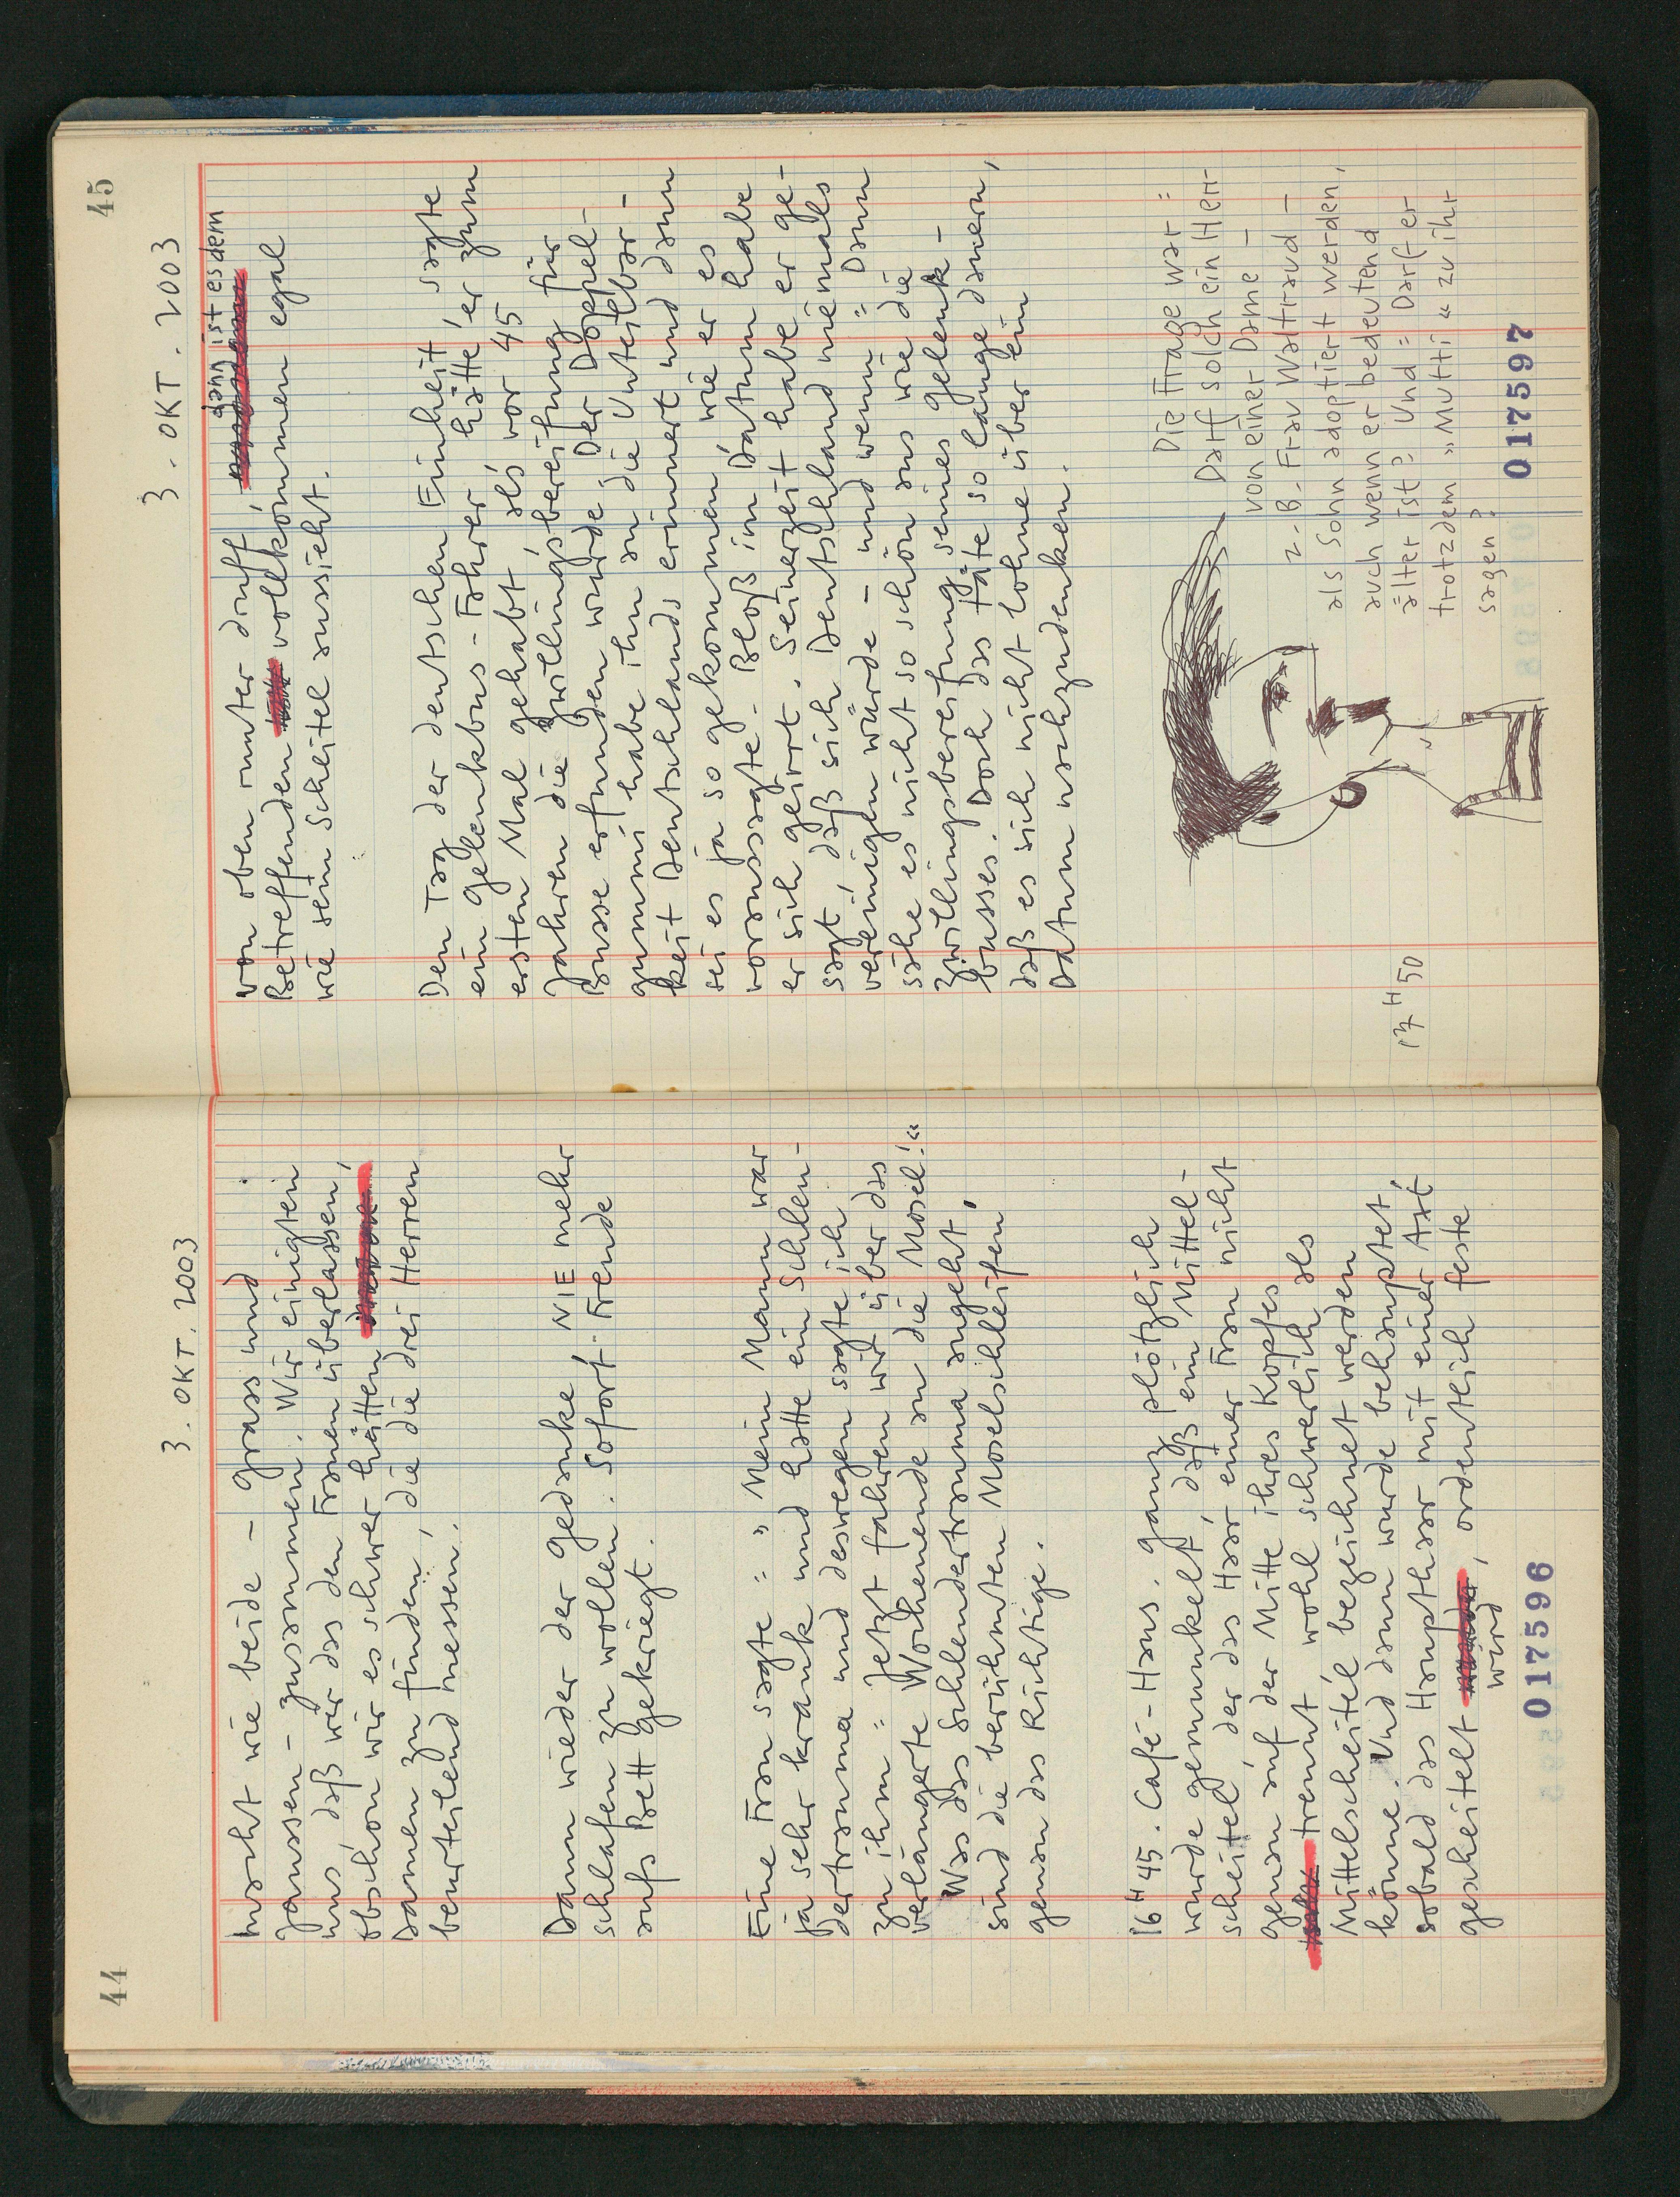 44
3. OKT. 2003
macht wie beide – Grass und
Janssen – zusammen. Wir einigten
uns, daß wir das den Frauen überlassen,
obschon wir es schwer hätten
Damen zu finden, die die drei Herren
beurteilend messen.
Dann wieder der Gedanke, NIE mehr
schlafen zu wollen. Sofort Freude
aufs Bett gekriegt.
Eine Frau sagte: „Mein Mann war
ja sehr krank und hatte ein Schleu-
dertrauma und deswegen sagte ich
zu ihm: Jetzt fahren wir über das
verlängerte Wochenende an die Mosel!“
Was das Schleudertrauma angeht,
sind die berühmten Moselschleifen
genau das Richtige.
16 H 45. Café-Haus. Ganz plötzlich
wurde gemunkelt, daß ein Mittel-
scheitel, der das Haar einer Frau nicht
genau auf der Mitte ihres Kopfes
trennt wohl schwerlich als
Mittelscheitel bezeichnet werden
könne. Und dann wurde behauptet,
sobald das Haupthaar mit einer Axt
gescheitelt, ordentlich feste
wird
017596
45
3. OKT. 2003
dann ist es dem
von oben runter druff,
Betreffenden vollkommen egal
wie sein Scheitel aussieht.
Den Tag der deutschen Einheit sagte
ein Gelenkbus-Fahrer, hätte er zum
ersten Mal gehabt, als vor 45
Jahren die Zwillingsbereifung für
Busse erfunden wurde. Der Doppel-
gummi habe ihn an die Unteilbar-
keit Deutschlands erinnert und dann
sei es ja so gekommen, wie er es
voraussagte. Bloß im Datum habe
er sich geirrt. Seinerzeit habe er ge-
sagt, daß sich Deutschland niemals
vereinigen würde – und wenn: Dann
sähe es nicht so schön aus wie die
Zwillingsbereifung seines Gelenk-
busses. Doch das täte so lange dauern,
daß es sich nicht lohne über ein
Datum nachzudenken.
17 H 50
Die Frage war:
Darf solch ein Herr
von einer Dame –
z. B. Frau Waltraud –
als Sohn adoptiert werden,
auch wenn er bedeutend
älter ist? Und: Darf er
trotzdem „Mutti“ zu ihr
sagen?
017597